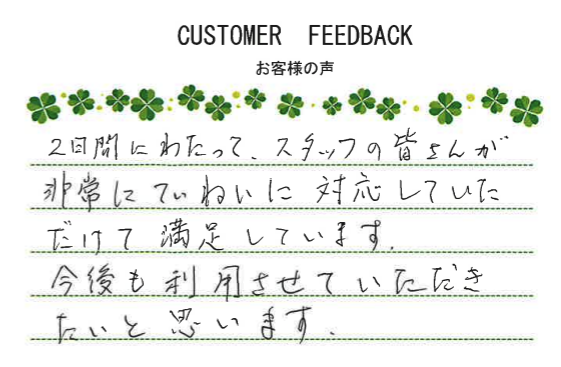 CUSTOMER FEEDBACK
お客様の声
2日間にわたって、スタッフの皆さんが
非常にていねいに対応していた
だけて満足しています。
今後も利用させていただき
たいと思います。